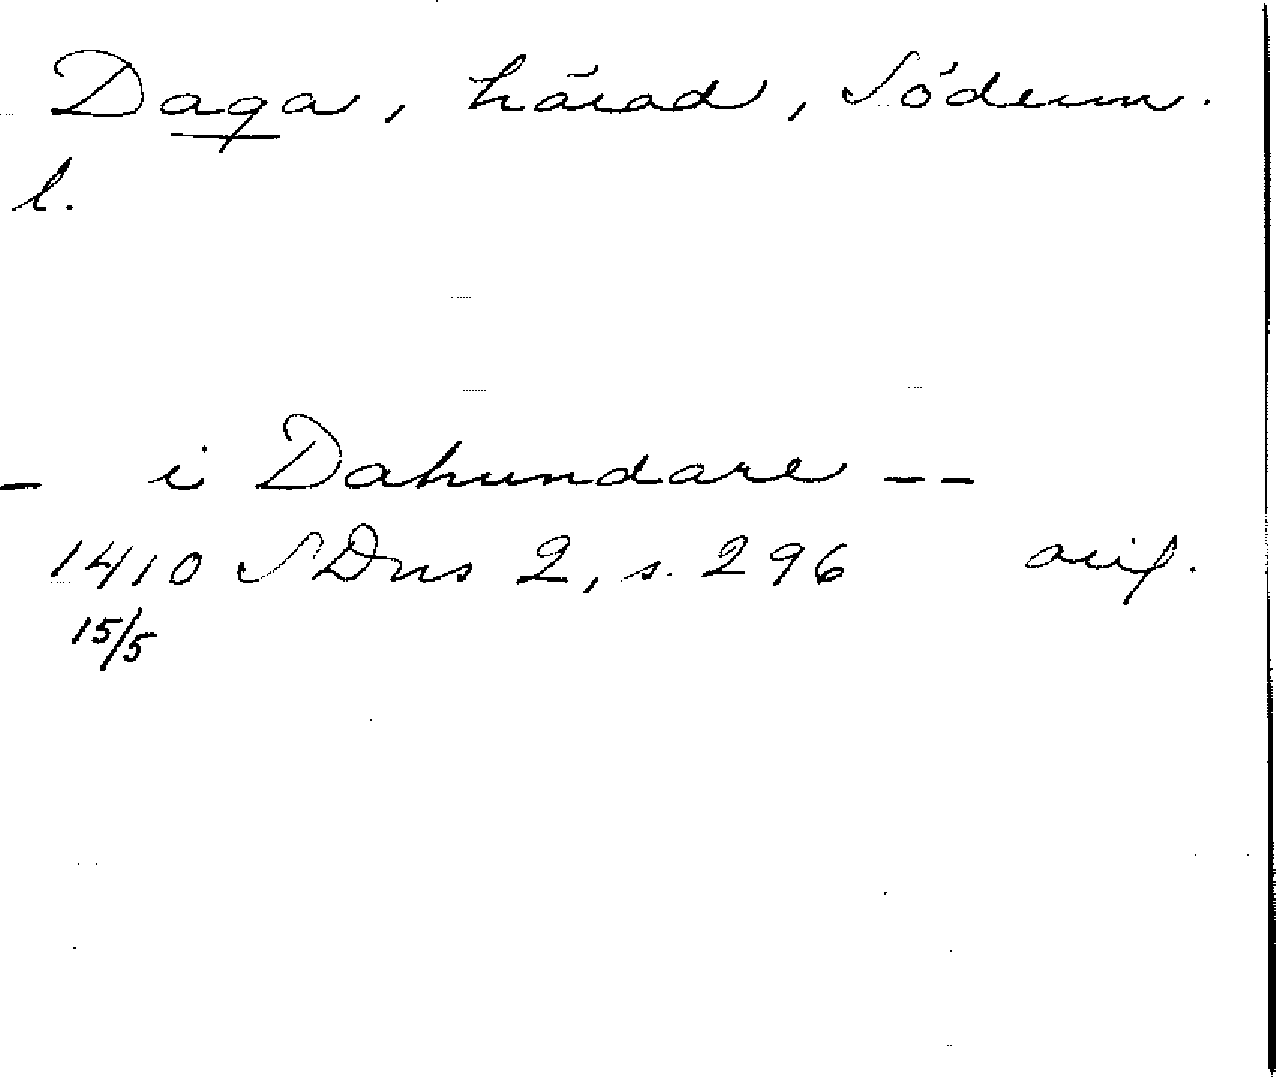 Daga, härad, Söderm.
l.
- i Dahundare --
1410 SDns 2, s. 296 orig.
15/5